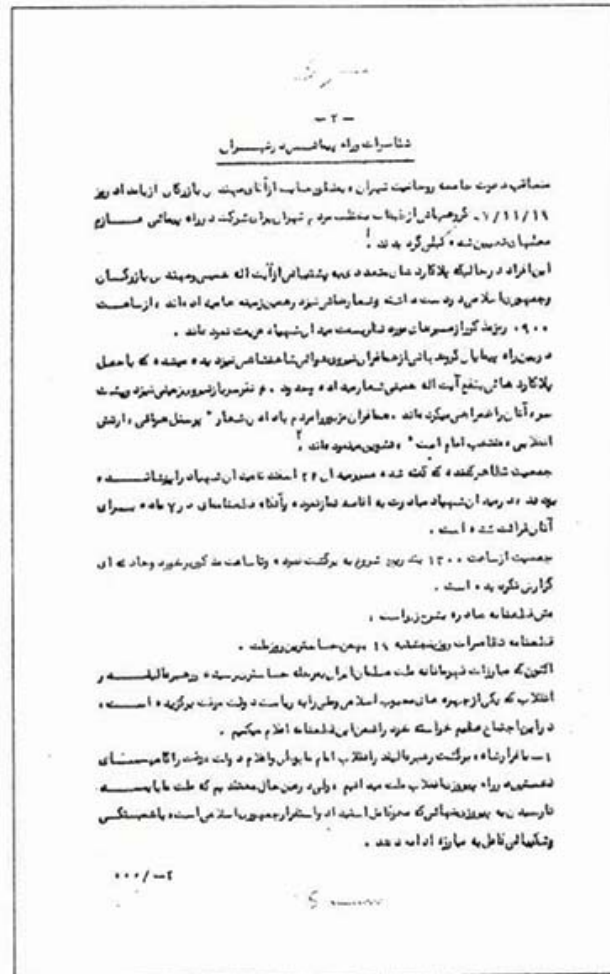 - ۲ -
تظاهرات و راه پیمائی در تهران
متعاقب دعوت جامعه روحانیت تهران، بمنظور حمایت از آقای مهندس بازرگان از بامداد روز
۱۱/۱۹/ گروههائی از طبقات مختلف مردم تهران برای شرکت در راه پیمائی عازم
محلهای تعیین شده قبلی گردیدند.
این افراد در حالیکه پلاکاردهای متعددی به پشتیبانی از آیت اله خمینی و مهندس بازرگان
و جمهوری اسلامی در دست داشته و شعارهائی نیز در همین زمینه ها میداده اند، از ساعت
۰۹۰۰ روز مذکور از مسیرهای مورد نظر بسمت میدان شهیاد عزیمت نموده اند.
در بین راه پیمایان گروههائی از همافران نیروی هوائی شاهنشاهی نیز دیده میشده که با حمل
پلاکاردهائی بنفع آیت اله خمینی شعار میداده و حدود ۶۰ نفر سرباز نیروی زمینی نیز در پشت
سر آنان را همراهی میکرده اند، همافران مزبور را مردم با دادن شعار " پرسنل هوائی، ارتش
انقلابی، منتخب امام است "، تشویق مینموده اند.
جمعیت تظاهر کننده که گفته شده مسیر میدان ۲۴ اسفند تا میدان شهیاد را پوشانده
بودند، در میدان شهیاد مبادرت به اقامه نماز نموده و آنگاه قطعنامه ای در ۷ ماده برای
آنان قرائت شده است.
جمعیت از ساعت ۱۳۰۰ بتدریج شروع به برگشت نموده و تا ساعت مذکور برخورد و حادثه ای
گزارش نگردیده است.
متن قطعنامه صادره بشرح زیر است:
قطعنامه تظاهرات روز پنجشنبه ۱۹ بهمن حساسترین روز ملت.
اکنون که مبارزات قهرمانانه ملت مسلمان ایران بمرحله حساستری رسیده و رهبر عالیقدر
انقلاب که یکی از چهره های محبوب اسلامی و ملی را به ریاست دولت موقت برگزیده است،
در این اجتماع عظیم خواسته خود را ضمن این قطعنامه اعلام میکنیم.
۱- با فرار شاه، برگشت رهبر عالیقدر انقلاب امام خمینی و اعلام دولت موقت را گامهای
نخستین در راه پیروزی انقلاب ملت میدانیم، ولی در عین حال معتقدیم که ملت ما باید
تا رسیدن به پیروزی نهائی که محو کامل استبداد و استقرار جمهوری اسلامی است، با همبستگی
و شکیبائی کامل به مبارزه ادامه دهد.
۰۰۰/-۲